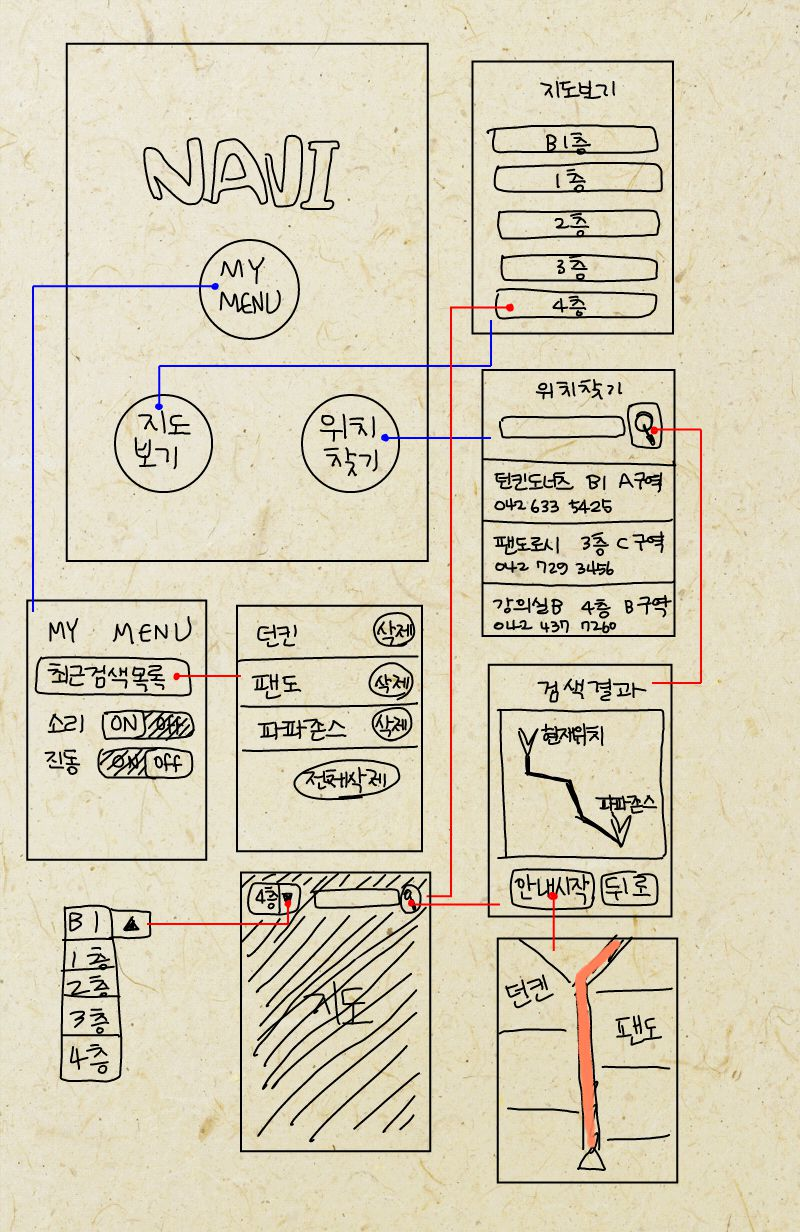 NAVI
MY
MENU
지도
보기
위치
찾기
지도보기
B1층
1층
2층
3층
4층
위치찾기
던킨도너츠 B1 A구역
042 633 5425
팬도로시 3층 C구역
042 729 3456
강의실B 4층 B구역
042 437 7260
MY MENU
최근검색목록
소리 ON Off
진동 ON Off
던킨 삭제
팬도 삭제
파파존스 삭제
전체삭제
검색결과
현재위치
파파존스
안내시작 뒤로
4층 ▼
지도
B1 ▲
1층
2층
3층
4층
던킨
팬도